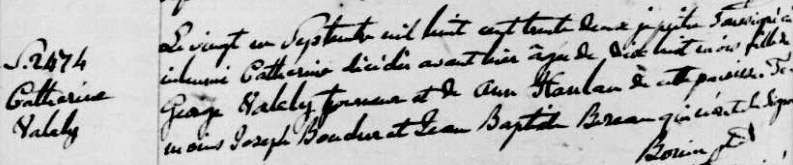 S. 2474
Catherine
Valely
Le vingt un Septembre mil huit cent trente deux je prêtre soussigné ai
inhumé Catherine décédée avant hier âgée de dix huit mois fille de
George Valely tourneur et de Ann Hanlan de cette paroisse. Té-
moins Joseph Boucher et Jean Baptiste qui n'ont su signer